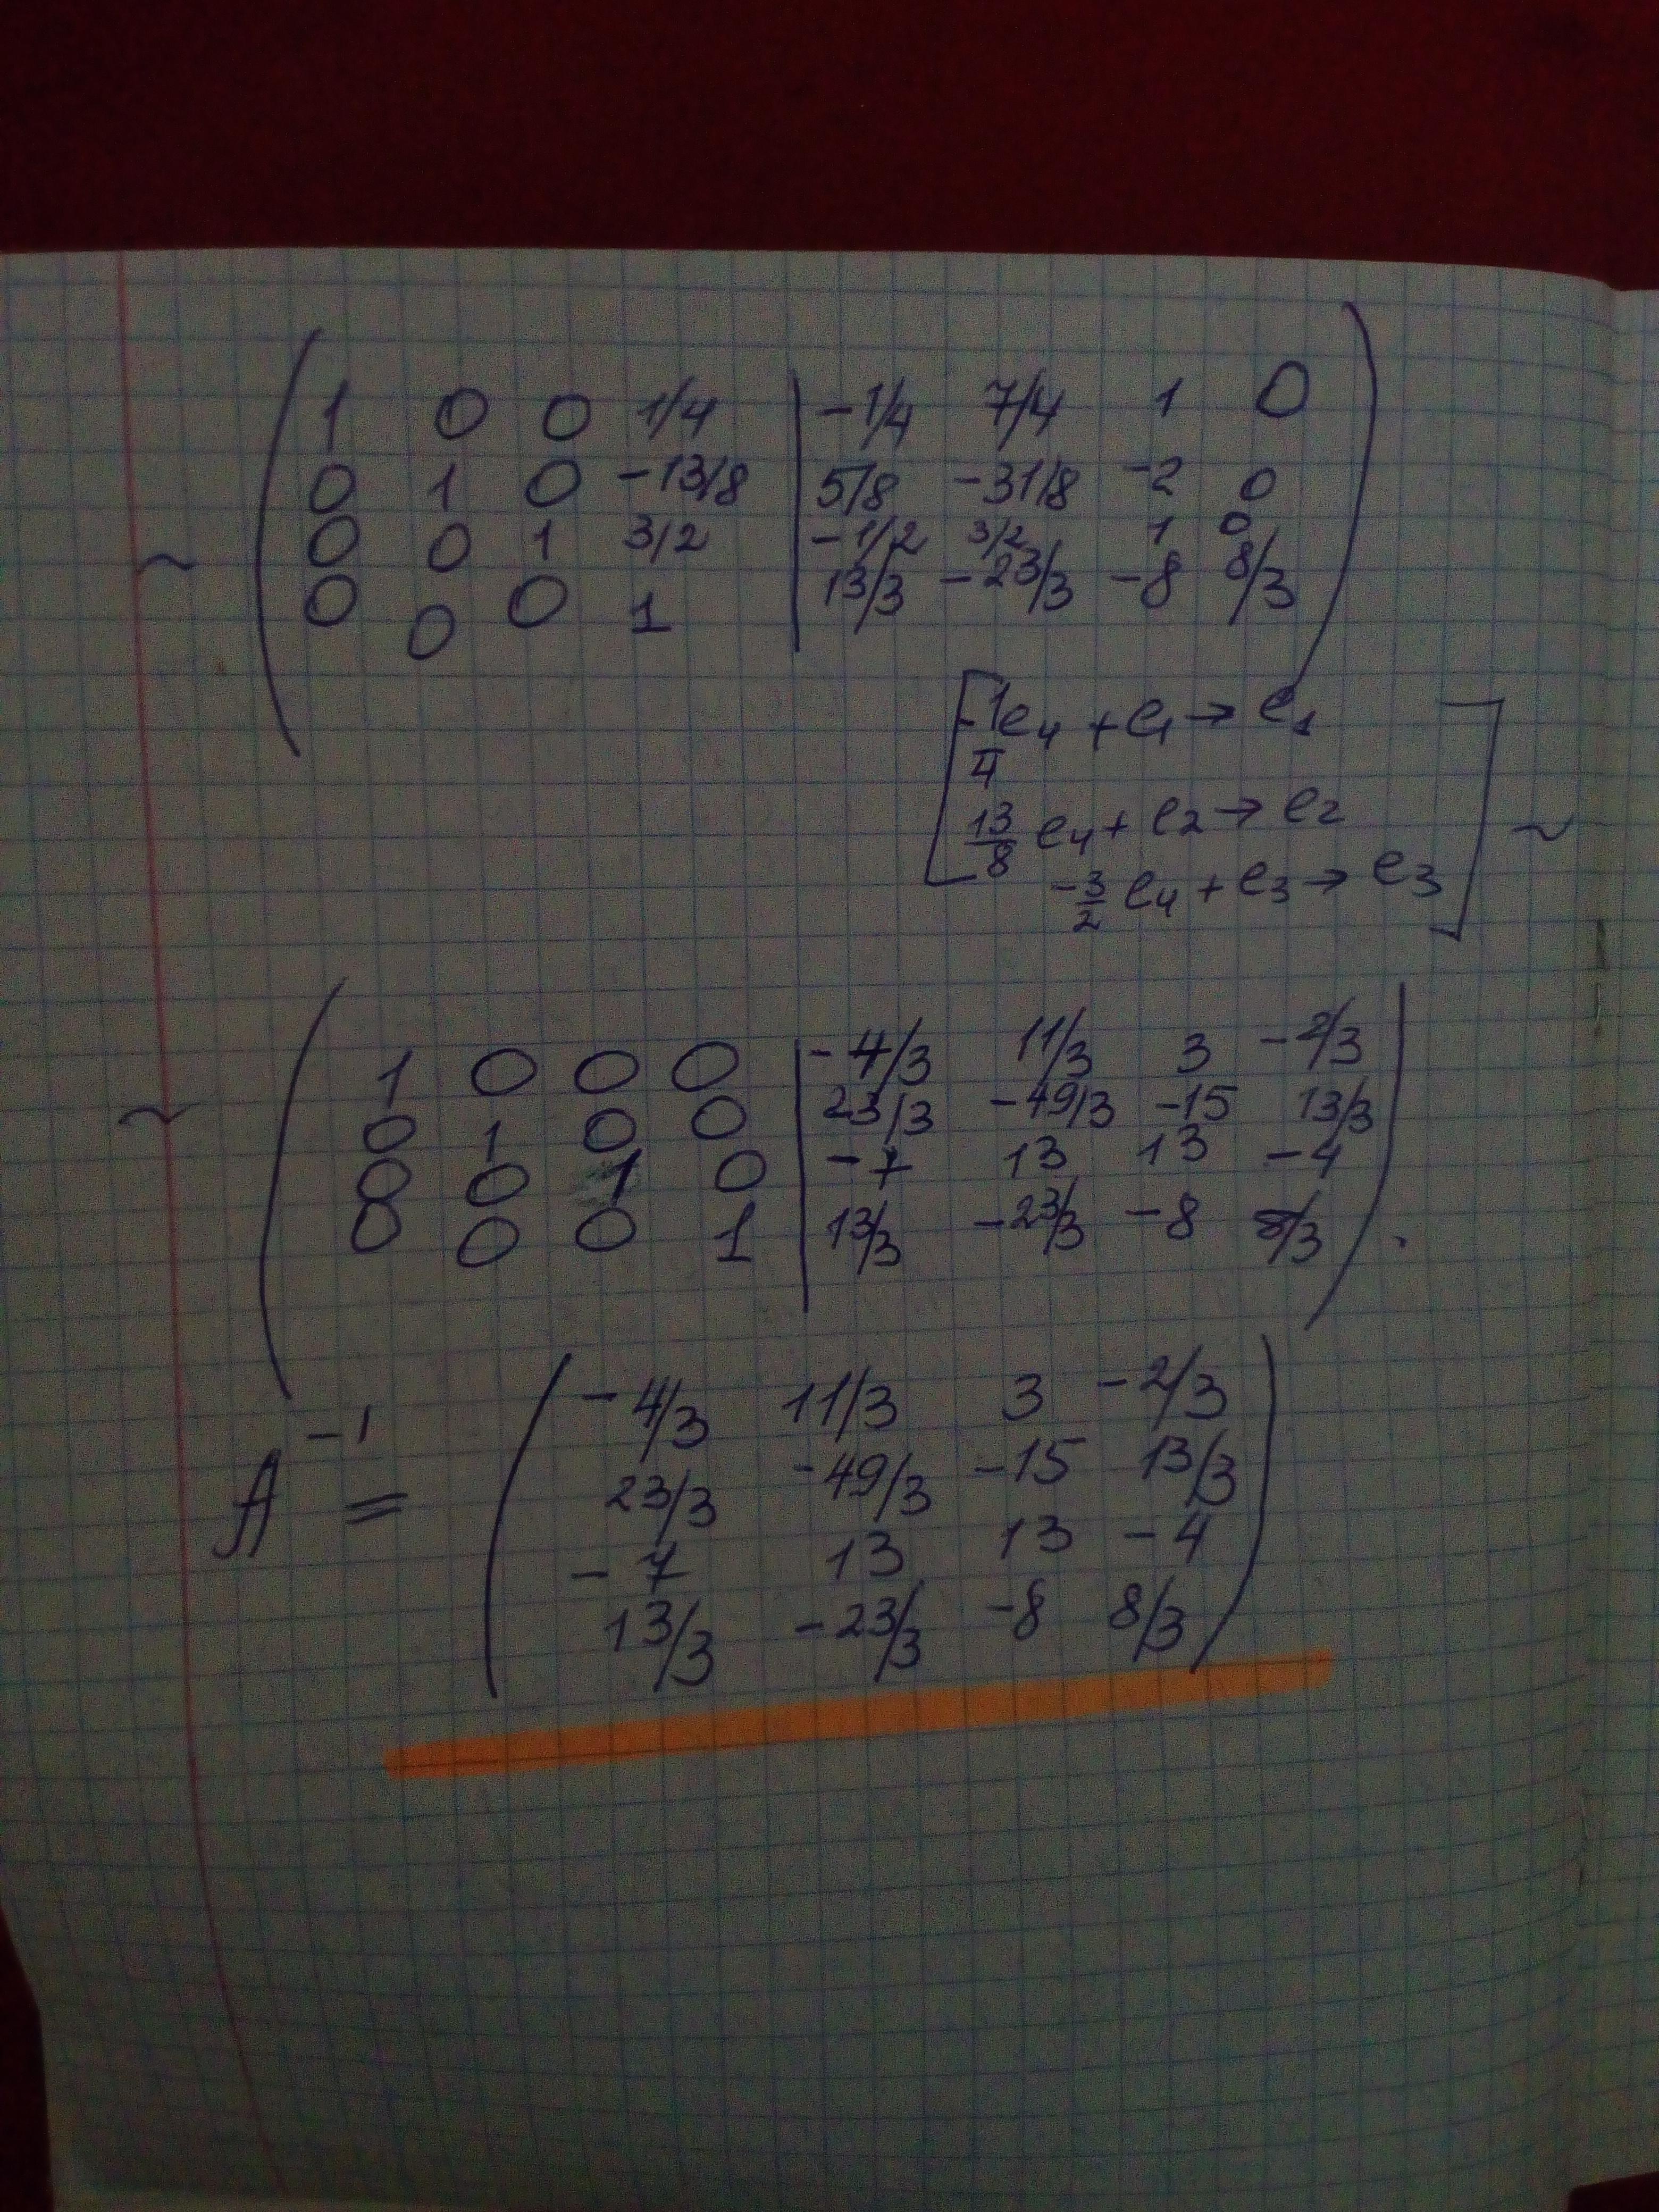 1 0 0 1/4 | -1/4 7/4 1 0
0 1 0 -13/8 | 5/8 -31/8 -2 0
~ 0 0 1 3/2 | -1/2 3/2 1 0
0 0 0 1 | 13/3 -23/3 -8 8/3
[-1/4 e4 + e1 → e1
13/8 e4 + e2 → e2
-3/2 e4 + e3 → e3] ~
1 0 0 0 | -4/3 11/3 3 -2/3
~ 0 1 0 0 | 23/3 -49/3 -15 13/3
0 0 1 0 | -7 13 13 -4
0 0 0 1 | 13/3 -23/3 -8 8/3 .
-4/3 11/3 3 -2/3
A⁻¹ = 23/3 -49/3 -15 13/3
-7 13 13 -4
13/3 -23/3 -8 8/3